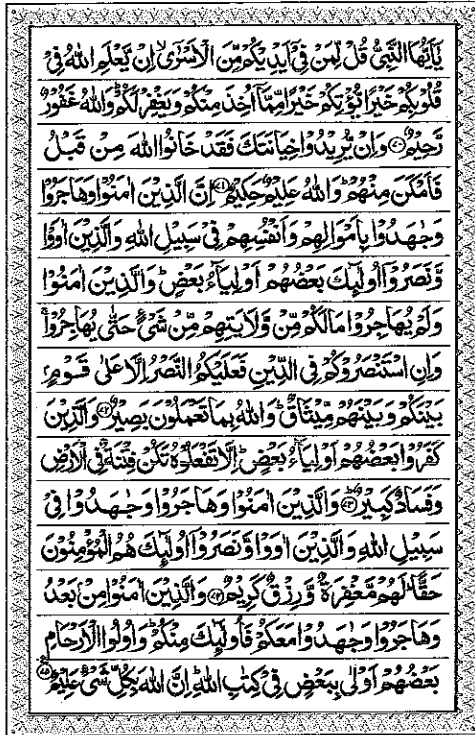 يٰۤاَيُّهَا النَّبِيُّ قُلْ لِّمَنْ فِيْۤ اَيْدِيْكُمْ مِّنَ الْاَسْرٰٓىۙ اِنْ يَّعْلَمِ اللّٰهُ فِيْ
قُلُوْبِكُمْ خَيْرًا يُّؤْتِكُمْ خَيْرًا مِّمَّاۤ اُخِذَ مِنْكُمْ وَيَغْفِرْ لَكُمْؕ وَاللّٰهُ غَفُوْرٌ
رَّحِيْمٌ ﴿۷۰﴾ وَاِنْ يُّرِيْدُوْا خِيَانَتَكَ فَقَدْ خَانُوا اللّٰهَ مِنْ قَبْلُ
فَاَمْكَنَ مِنْهُمْؕ وَاللّٰهُ عَلِيْمٌ حَكِيْمٌ ﴿۷۱﴾ اِنَّ الَّذِيْنَ اٰمَنُوْا وَهَاجَرُوْا
وَجٰهَدُوْا بِاَمْوَالِهِمْ وَاَنْفُسِهِمْ فِيْ سَبِيْلِ اللّٰهِ وَالَّذِيْنَ اٰوَوْا
وَّنَصَرُوْۤا اُولٰٓئِكَ بَعْضُهُمْ اَوْلِيَآءُ بَعْضٍؕ وَالَّذِيْنَ اٰمَنُوْا
وَلَمْ يُهَاجِرُوْا مَا لَكُمْ مِّنْ وَّلَايَتِهِمْ مِّنْ شَيْءٍ حَتّٰى يُهَاجِرُوْاۚ
وَاِنِ اسْتَنْصَرُوْكُمْ فِي الدِّيْنِ فَعَلَيْكُمُ النَّصْرُ اِلَّا عَلٰى قَوْمٍۭ
بَيْنَكُمْ وَبَيْنَهُمْ مِّيْثَاقٌؕ وَاللّٰهُ بِمَا تَعْمَلُوْنَ بَصِيْرٌ ﴿۷۲﴾ وَالَّذِيْنَ
كَفَرُوْا بَعْضُهُمْ اَوْلِيَآءُ بَعْضٍؕ اِلَّا تَفْعَلُوْهُ تَكُنْ فِتْنَةٌ فِي الْاَرْضِ
وَفَسَادٌ كَبِيْرٌ ﴿۷۳﴾ وَالَّذِيْنَ اٰمَنُوْا وَهَاجَرُوْا وَجٰهَدُوْا فِيْ
سَبِيْلِ اللّٰهِ وَالَّذِيْنَ اٰوَوْا وَّنَصَرُوْۤا اُولٰٓئِكَ هُمُ الْمُؤْمِنُوْنَ
حَقًّاؕ لَهُمْ مَّغْفِرَةٌ وَّرِزْقٌ كَرِيْمٌ ﴿۷۴﴾ وَالَّذِيْنَ اٰمَنُوْا مِنْۢ بَعْدُ
وَهَاجَرُوْا وَجٰهَدُوْا مَعَكُمْ فَاُولٰٓئِكَ مِنْكُمْؕ وَاُولُوا الْاَرْحَامِ
بَعْضُهُمْ اَوْلٰى بِبَعْضٍ فِيْ كِتٰبِ اللّٰهِؕ اِنَّ اللّٰهَ بِكُلِّ شَيْءٍ عَلِيْمٌ ﴿۷۵﴾